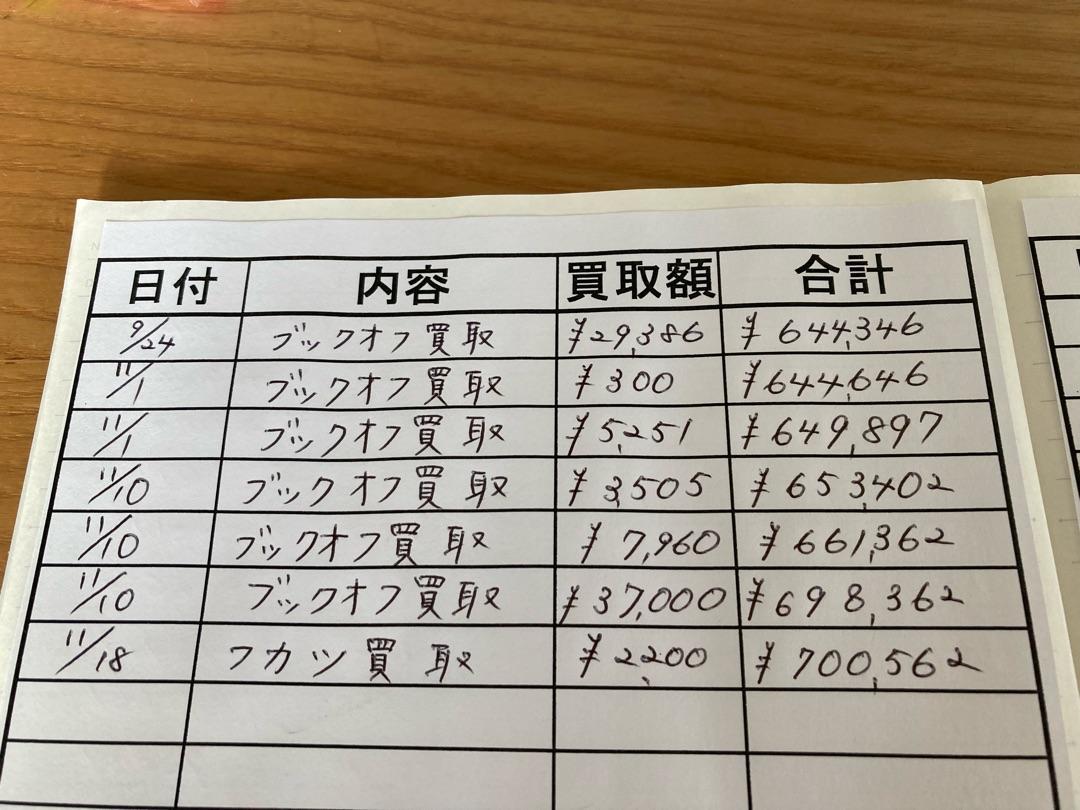 日付 内容 買取額 合計
9/24 ブックオフ買取 ¥29,386 ¥644,346
11/1 ブックオフ買取 ¥300 ¥644,646
11/1 ブックオフ買取 ¥5,251 ¥649,897
11/10 ブックオフ買取 ¥3,505 ¥653,402
11/10 ブックオフ買取 ¥7,960 ¥661,362
11/10 ブックオフ買取 ¥37,000 ¥698,362
11/18 フカツ買取 ¥2,200 ¥700,562